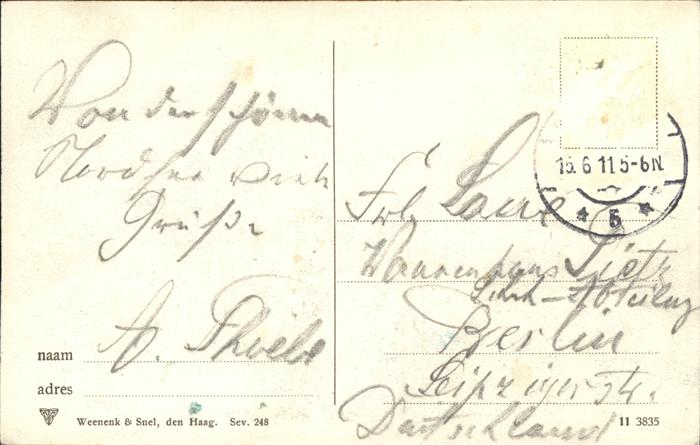 Von der schönen
Nordsee viele
Grüße
A. Thiele
naam
adres
Weenenk & Snel, den Haag. Sev. 248
15.6.11 5-6N
* 5 *
Frl.
Warenhaus Tietz
Abteilung
Berlin
Leipzigerstr.
Deutschland
11 3835